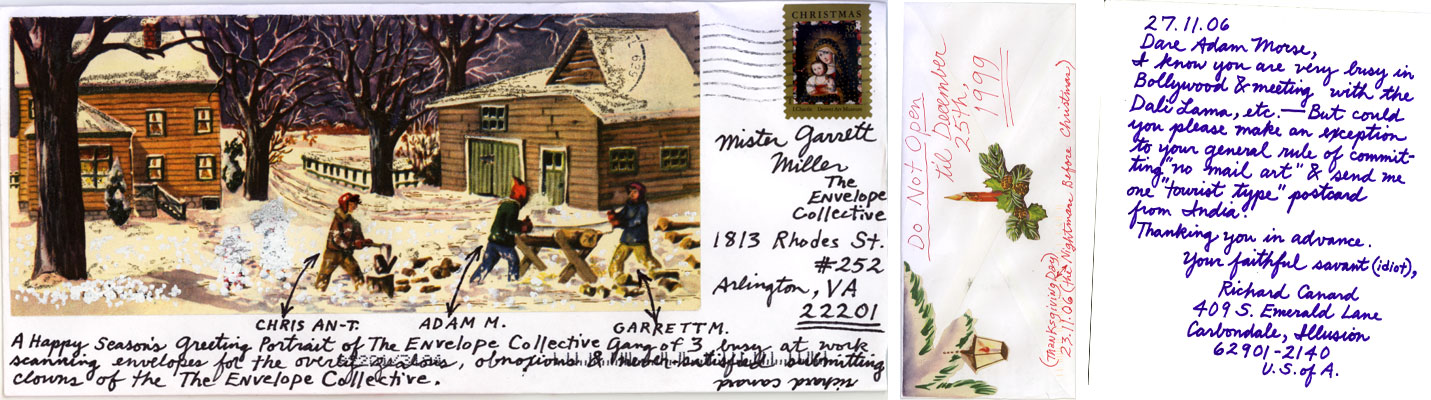 CHRISTMAS
39
Mister Garrett
Miller
The
Envelope
Collective
1813 Rhodes St.
#252
Arlington, VA
22201
CHRIS AN-T.
ADAM M.
GARRETT M.
A Happy Season's Greeting Portrait of The Envelope Collective Gang of 3 busy at work
scanning envelopes for the overly zealous, obnoxious & never satisfied submitting
clowns of the The Envelope Collective.
richard canard
Do Not Open
til December
25th,
1999
(Thanksgiving Day)
23.11.06 (the Nightmare Before Christmas)
27.11.06
Dare Adam Morse,
I know you are very busy in
Bollywood & meeting with the
Dali Lama, etc.—But could
you please make an exception
to your general rule of commit-
ting "no mail art" & send me
one "tourist type" postcard
from India?
Thanking you in advance.
Your faithful savant (idiot),
Richard Canard
409 S. Emerald Lane
Carbondale, Illusion
62901-2140
U.S. of A.